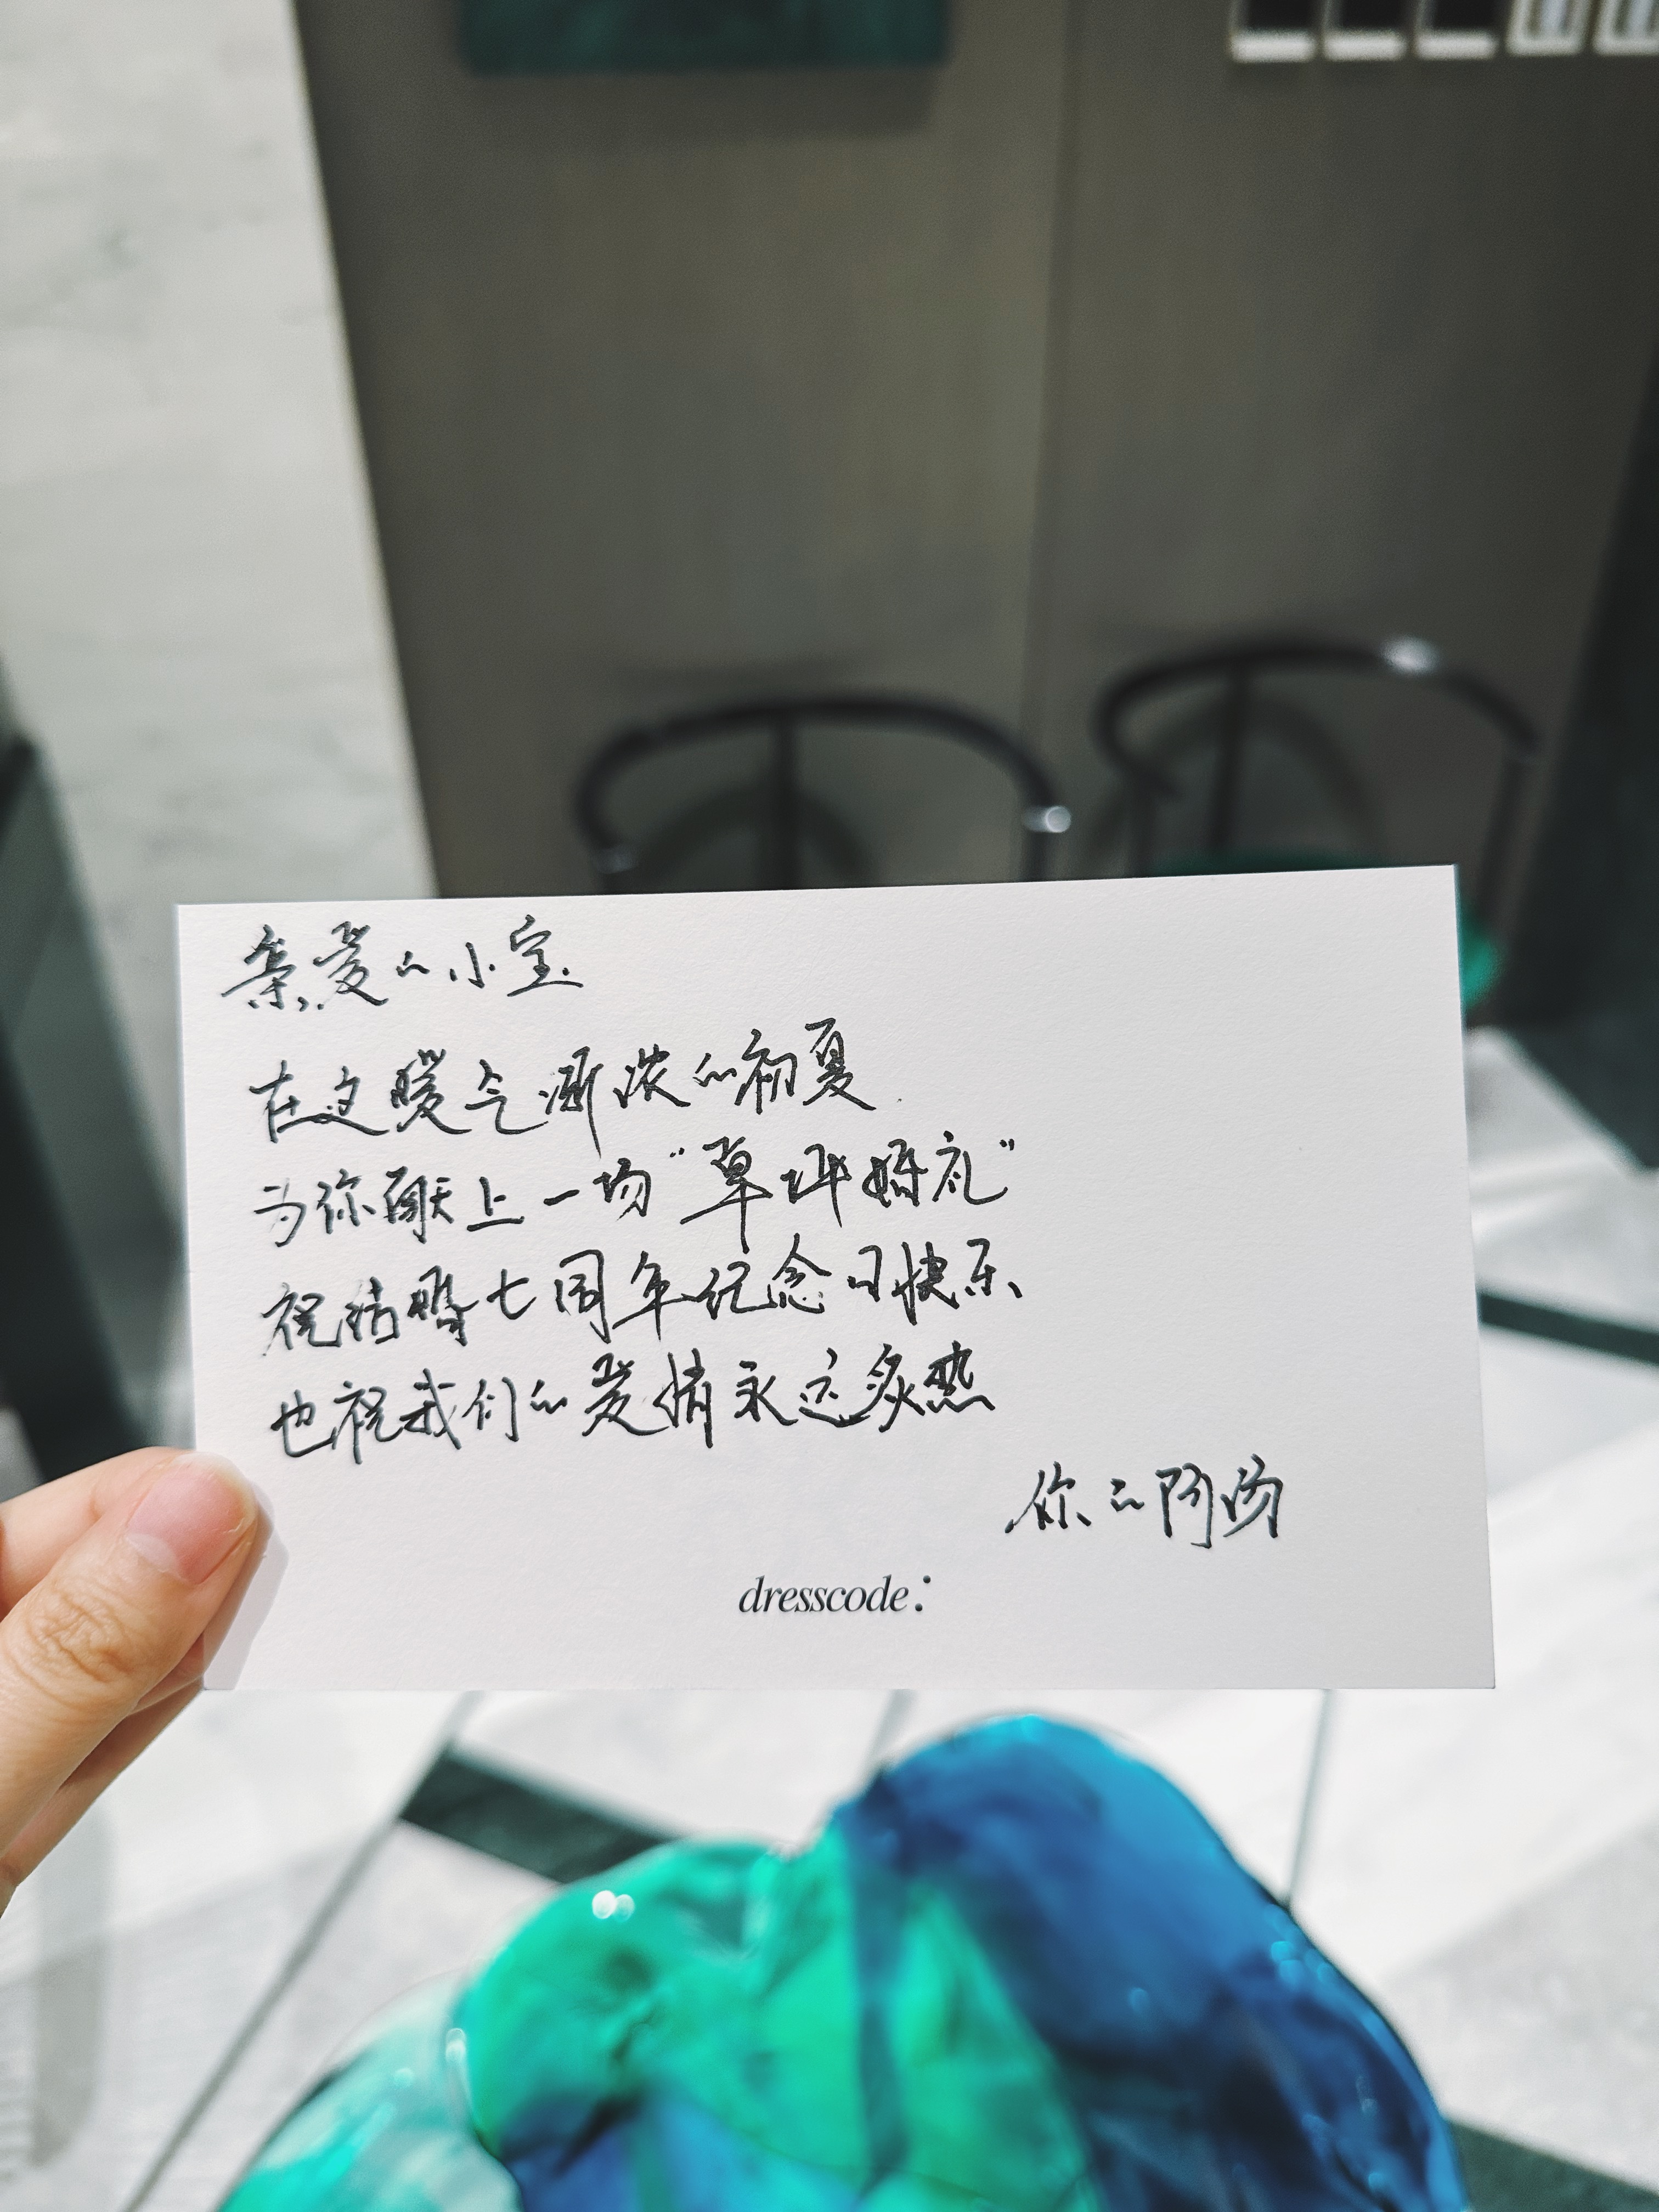 亲爱的小宝
在这暖气渐浓的初夏
为你献上一场“草坪婚礼”
祝结婚七周年纪念日快乐
也祝我们的爱情永远炙热
你的阿
dresscode: